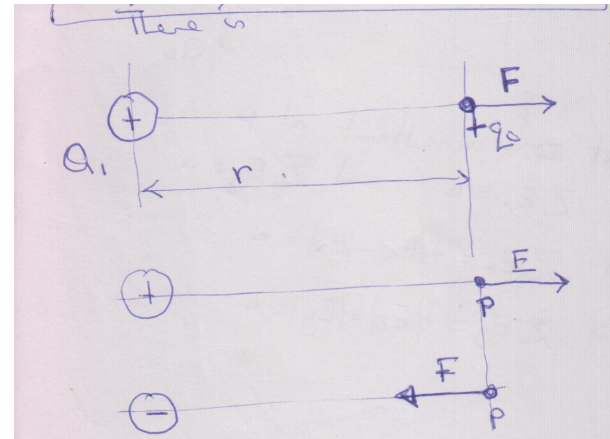 There is
F
+
+q₀
Q₁
r
+
E
P
F
−
P